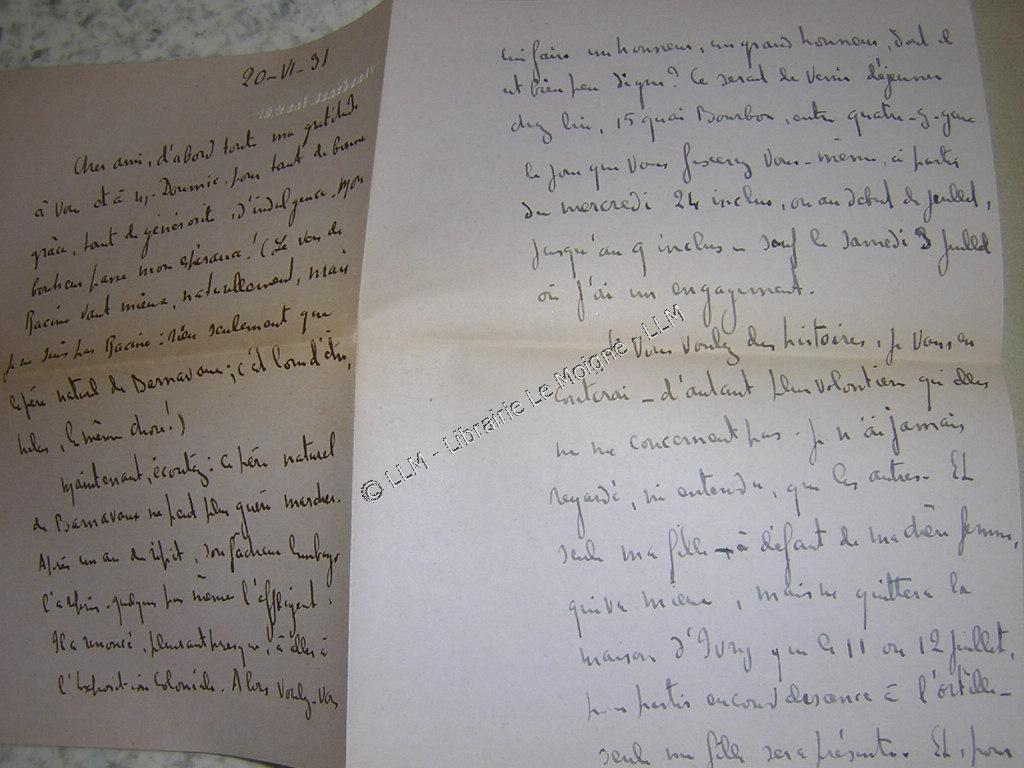 20-VI-31
Cher ami, d'abord toute ma gratitude
à vous et à M. Doumic, pour tant de bonne
grâce, tant de générosité, d'indulgence. Mon
bonheur passe mon espérance! (Le vers de
Racine vaut mieux, naturellement, mais
je ne suis pas Racine: rien seulement que
le père naturel de Barnavaux; c'est loin d'être,
hélas, la même chose!)
Maintenant, écoutez: ce père naturel
de Barnavaux ne peut plus guère marcher.
Après un an de répit, son fâcheux lumbago
l'a repris. quelques pas même l'affligent.
Il a renoncé, pleurant presque, à aller à
l'Exposition Coloniale. Alors voulez-vous
lui faire un honneur, un grand honneur, dont il
est bien peu digne? Ce serait de venir déjeuner
chez lui, 15 quai Bourbon, entre quatre-z-yeux
le jour que vous fixerez vous-même, à partir
du mercredi 24 inclus, ou au début de juillet,
jusqu'au 9 inclus – sauf le samedi 3 juillet
où j'ai un engagement.
Si vous voulez des histoires, je vous en
conterai – d'autant plus volontiers qu'elles
ne me concernent pas. Je n'ai jamais
regardé, ni entendu, que les autres. Et
seule ma fille – à défaut de ma chère femme,
qui va mieux, mais ne quittera la
maison d'Ivry que le 11 ou 12 juillet,
pour partir en convalescence à
seule ma fille sera présente. Et, pour
© LLM - Librairie Le Moigne - LLM